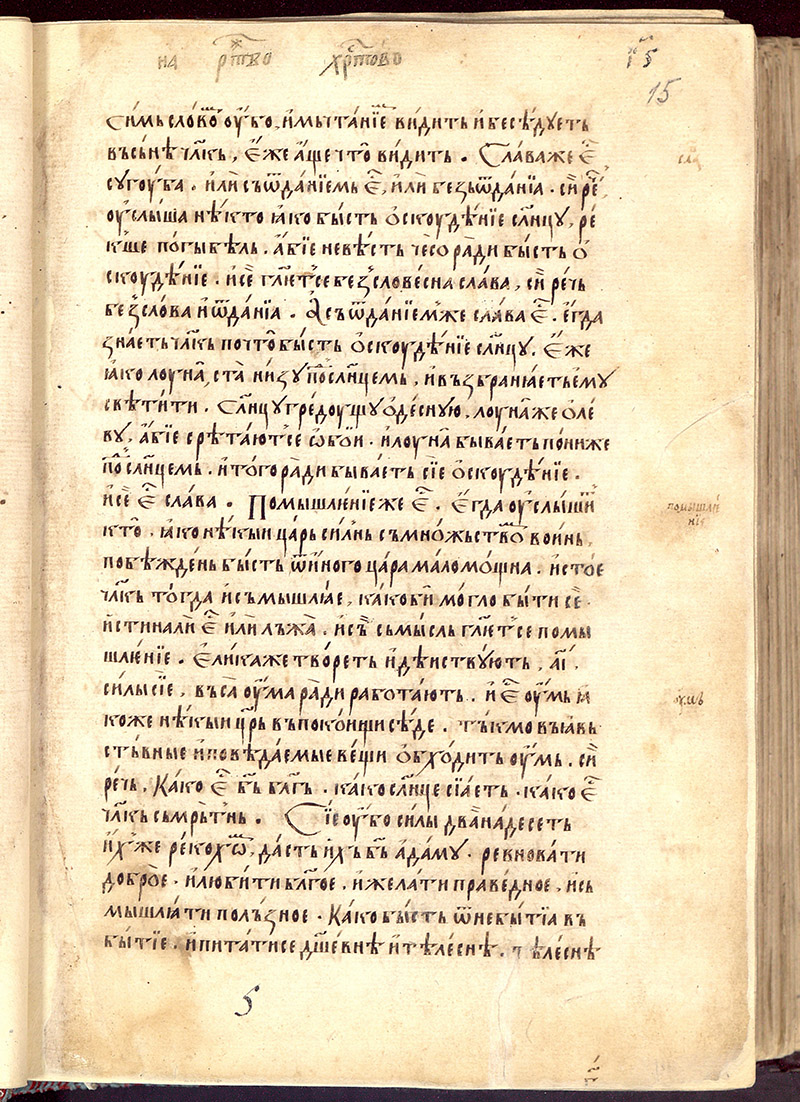 на рⷭ҇тво хрⷭ҇тово
15
Си́мь сло́вѡⷨ оу҆́бо, и҆мытанїеⷨ ви́дить и҆ бесѣ́дуеть
въсь нѣ чл҃кь, є҆́же а҆́ще что̀ ви́дить. Сла́ва же є҆ⷭ҇
сугоу́ба. и҆лѝ съ ѿда́нїемь є҆ⷭ҇, и҆лѝ без̾ ѿда́нїа. си́ реⷱ҇,
оу҆слы́ша нѣ́кто ꙗ҆́ко бы́сть ѻ҆скоудѣ́нїе сл҃нцу, ре́
кше по́гыбѣль. а҆́бїе не вѣ́сть чесо ра́ди бы́сть ѻ҆
скоудѣ́нїе. и҆ сѐ гл҃ет̾се без̾слове́сна сла́ва, си́ рѣчь
без̾ сло́ва и҆ ѿда́нїа. А҆ съ ѿда́нїем̾ же сла́ва є҆ⷭ҇. є҆гда
зна́еть чл҃кь по что̀ бы́сть ѻ҆скоудѣ́нїе сл҃нцу. є҆́же
ꙗ҆́ко лоуна̀ ста̀ ни́зу поⷣ сл҃нцемь, и҆ възбранꙗ́еть є҆му
свѣти́ти. Сл҃нцу гредоу́щу ѻ҆десную, лоуна̀ же ѻ҆ лѣ
ву, а҆́бїе срѣта́ют̾се ѻ҆бои. и҆ лоуна̀ быва́еть пони́же
поⷣ сл҃нцемь. и҆ то́го ра́ди быва́еть сїе ѻ҆скоудѣ́нїе.
и҆ сѐ є҆ⷭ҇ сла́ва. Помышле́нїе же є҆ⷭ҇. є҆гда оу҆слы́шиⷮ
кто̀. ꙗ҆́ко нѣ́кыи ца́рь си́лнь съ мно́жьствоⷨ во́инь,
побѣжде́нь бы́сть ѿ и҆́ного ца́ра маломо́щна. и҆ сто́е
чл҃кь то́гда и҆ съмышлꙗ́е, ка́ко бѝ мо́гло бы́ти сѐ.
и҆́стина ли̏ є҆ⷭ҇ и҆лѝ лъжа̀. и҆ съ̀ смы́сль гл҃ет̾се помы
шле́нїе. Е҆ли́ка же тво́реть и҆ дѣ́иствую́ть, а҃і҃.
си́лы сїе, въса̀ оу҆ма̀ ра́ди рабо́тають. и҆ є҆ⷭ҇ оу҆мь ꙗ҆
коже нѣ́кыи цр҃ь въ поко́ищи сѣ́де. тъ́кмо въ ꙗ҆вь
ств́ные и҆ повѣ́даемые ве́щи ѻ҆бхо́дить оу҆́мь. си́
речь, Ка́ко є҆ⷭ҇ бг҃ь бл҃гь. ка́ко сл҃нце сїа́еть. ка́ко є҆ⷭ҇
чл҃кь съмрь́тнь. Сїе оу҆́бо си́лы двана́десеть
и҆́х̾же реко́хѡⷨ, да́сть и҆хь бг҃ь а҆да́му. ревнова́ти
добро̀е. и҆ люби́ти бл҃гое, и҆ жела́ти пра́ведное, и҆ съ
мышлꙗ́ти полъ́зное. Ка́ко бы́сть ѿ небы́тїа въ
бы́тїе. и҆ пита́тисе дш҃е́внѣ и҆ тѣле́снѣ. тѣле́снѣ
помышле́нїа
оу҆мь
5